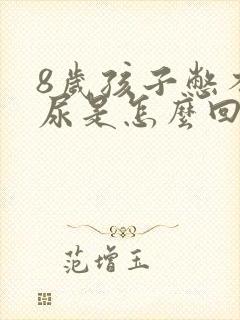 8歲孩子憋不
尿是怎麼回
范增玉